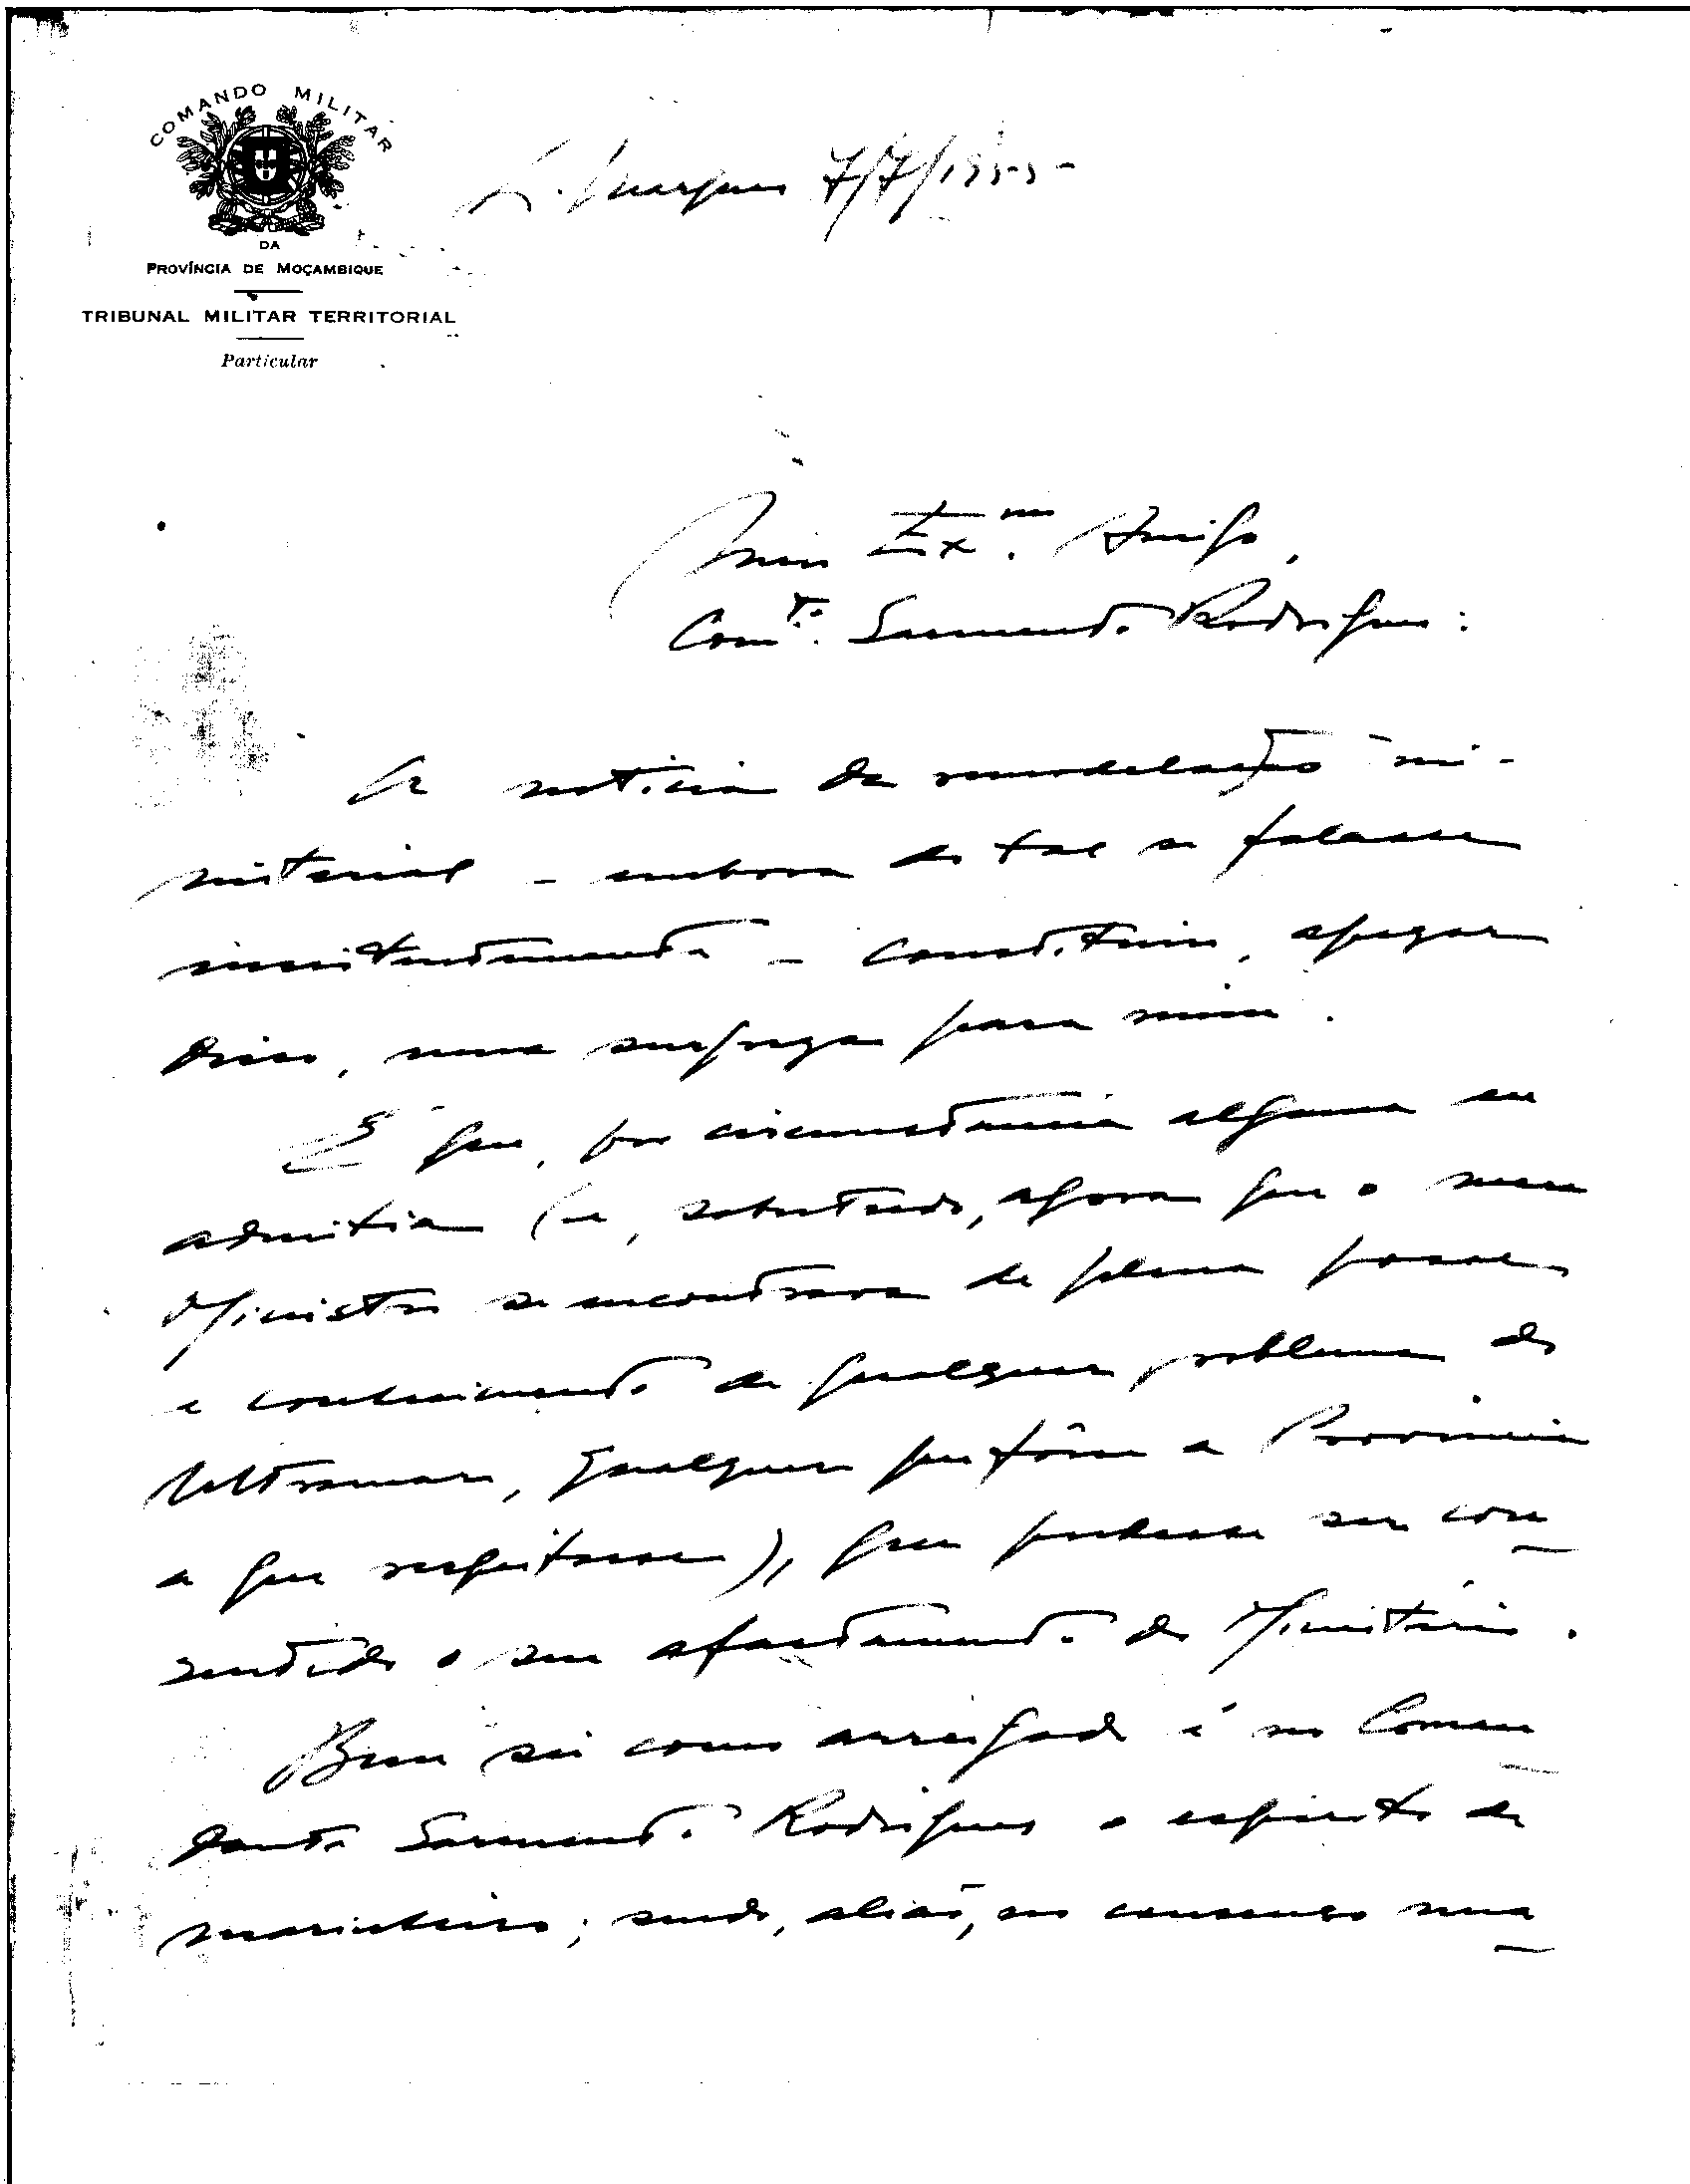 COMANDO MILITAR
DA
PROVÍNCIA DE MOÇAMBIQUE
TRIBUNAL MILITAR TERRITORIAL
Particular
L. Marques 7/7/1955-
Meu Ex.mo Amigo,
Com.te Sarmento Rodrigues:
A notícia da remodelação mi-
nisterial - embora de tal se falasse
insistentemente - constituiu, apezar
disso, uma surpreza para mim.
É que, por circunstância alguma eu
admitia (e, sobretudo, agora que o meu
Ministro se encontrava de plena posse
e conhecimento de qualquer problema do
Ultramar, qualquer que fôsse a Província
a que respeitasse), que pudesse ser con
sentido o seu afastamento do Ministério.
Bem sei como arreigado é no Coman
dante Sarmento Rodrigues o espírito de
marinheiro; sendo, aliás, no consenso una